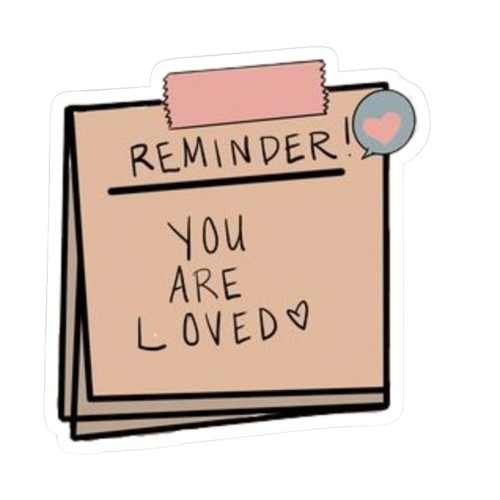 REMINDER!
YOU
ARE
LOVED♡